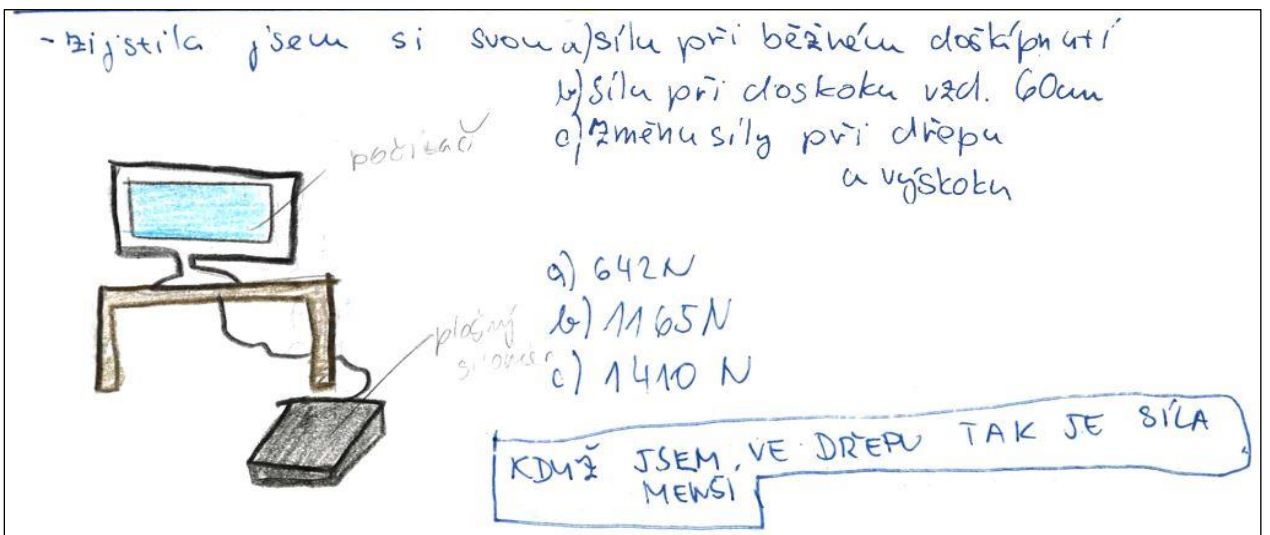 - zijistila jsem si svou a) sílu při běžném došlápnutí
b) sílu při doskoku vzd. 60cm
c) změnu síly při dřepu
a výskoku
počítač
a) 642N
b) 1165N
plošný
siloměr
c) 1410 N
KDYŽ JSEM VE DŘEPU TAK JE SÍLA
MENŠÍ